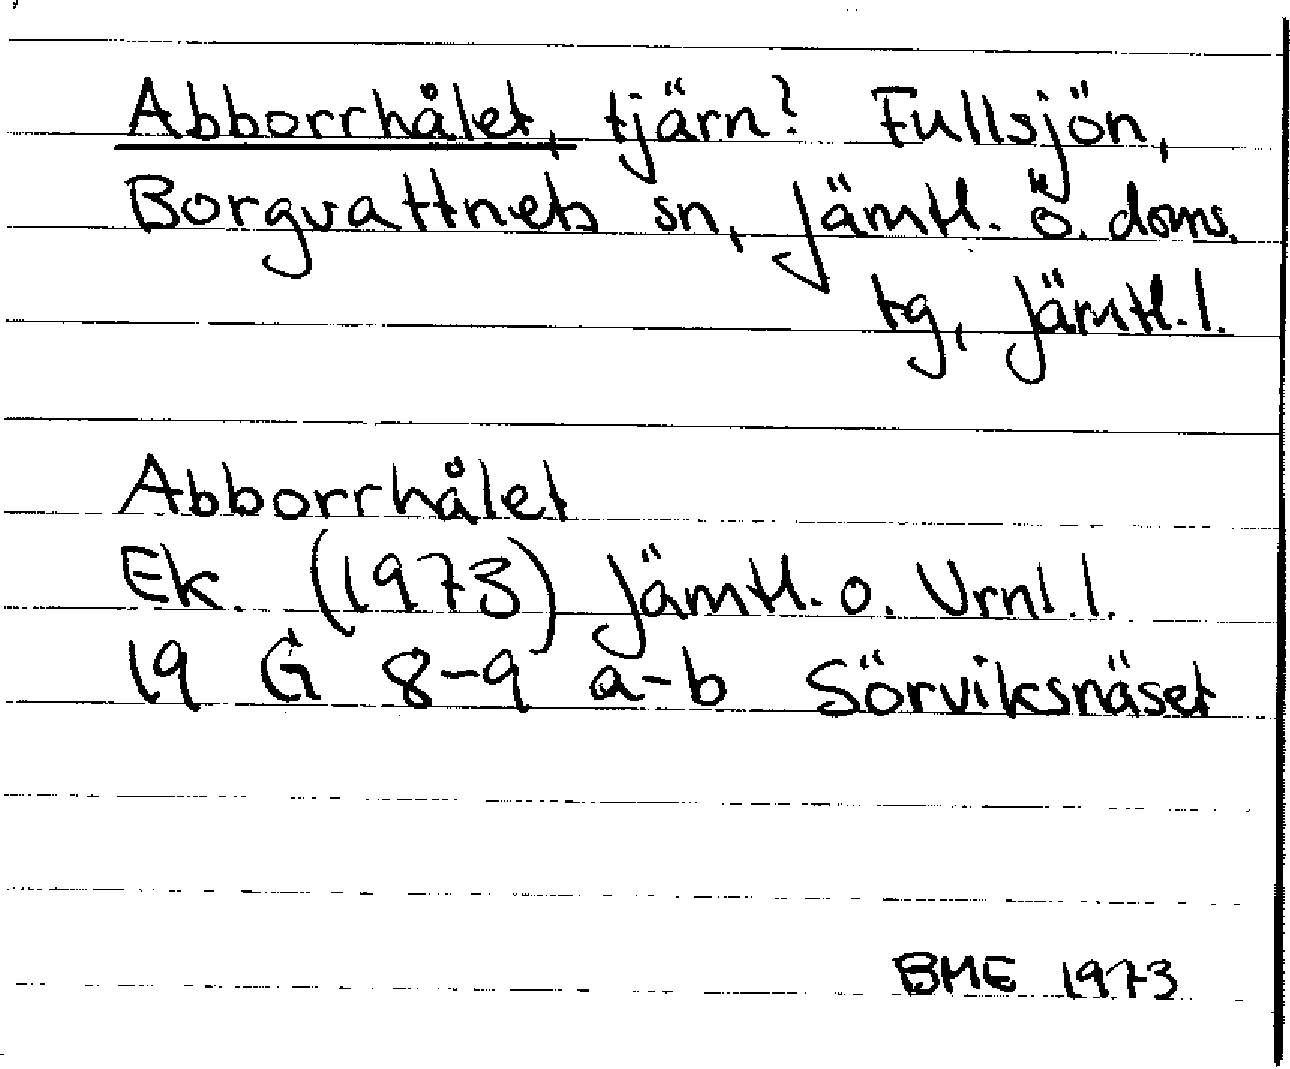 Abborrhålet, tjärn? Fullsjön,
Borgvattnets sn, Jämtl. ö. doms.
tg, Jämtl. l.
Abborrhålet
Ek. (1973) Jämtl. o. Vrnl. l.
19 G 8-9 a-b Sörviksnäset
BME 1973